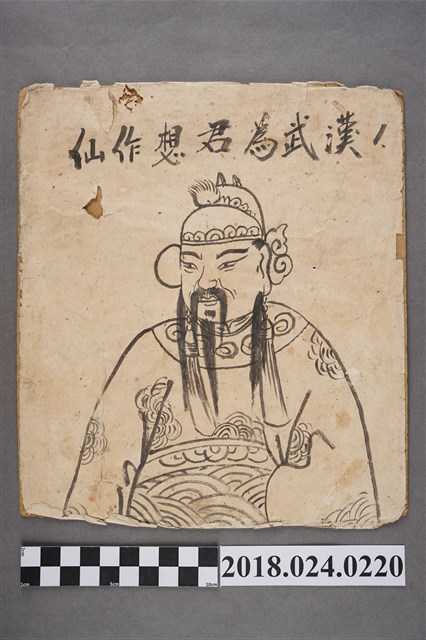 漢武為君想作仙
2018.024.0220